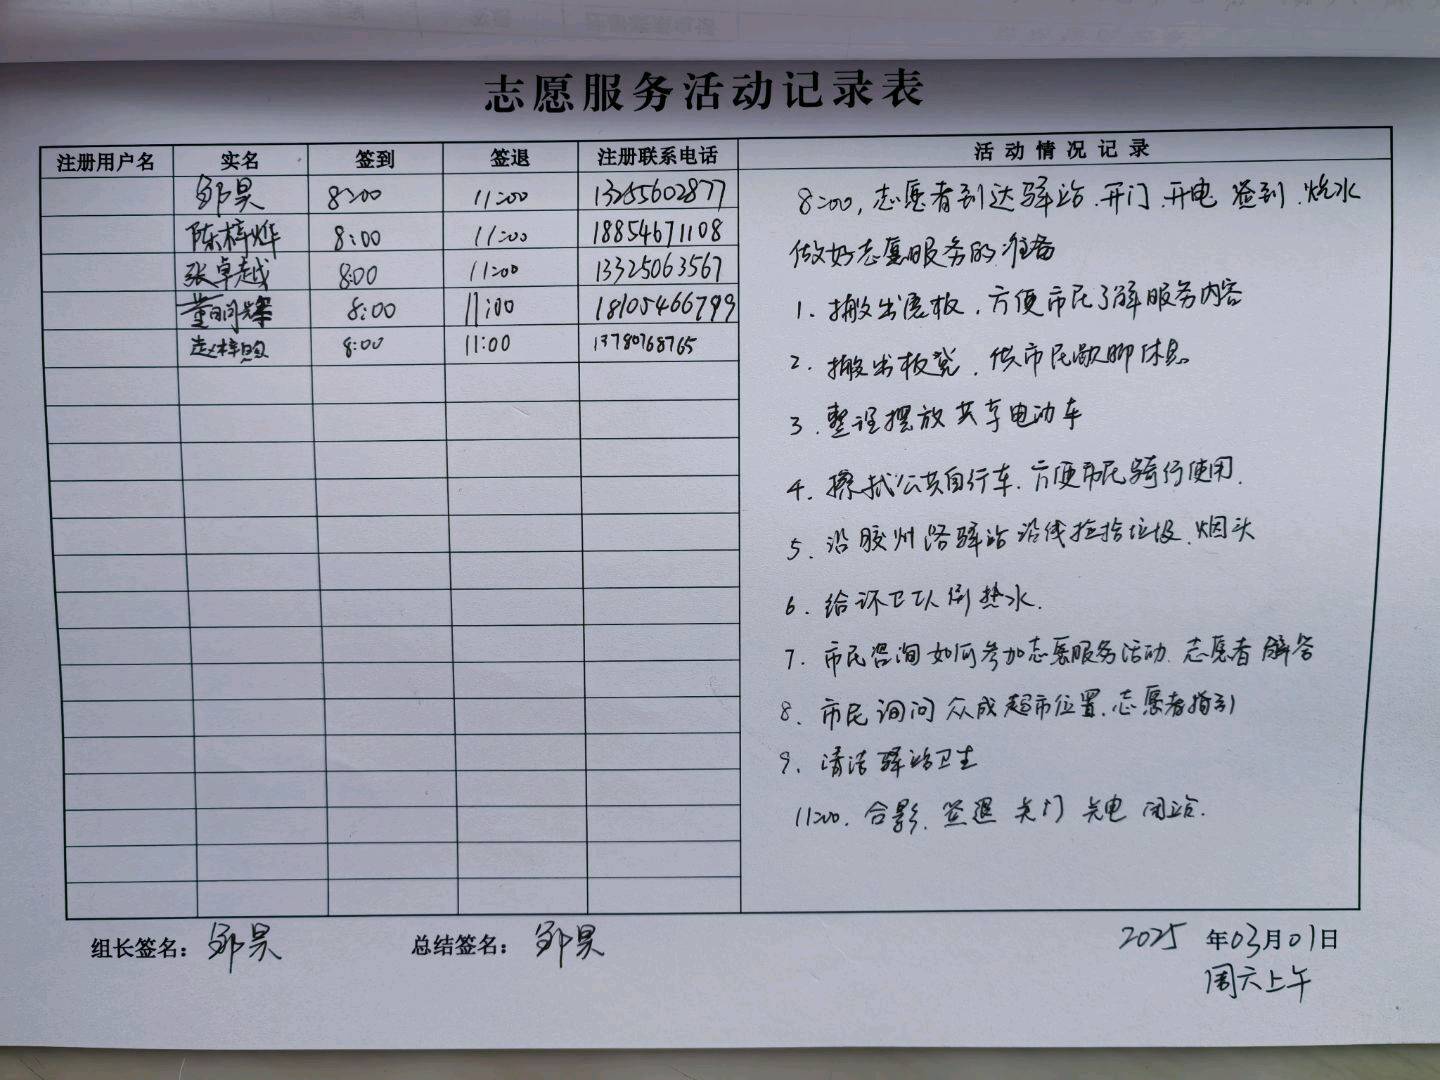 志愿服务活动记录表
注册用户名 实名 签到 签退 注册联系电话 活动情况记录
邹昊 8:00 11:00 13255602877
陈梓烨 8:00 11:00 18854671108
张卓越 8:00 11:00 13325063567
董明烨 8:00 11:00 18105466799
赵梓煦 8:00 11:00 13780768765
8:00,志愿者到达驿站.开门.开电 签到.烧水
做好志愿服务的准备
1.搬出展板,方便市民了解服务内容
2.搬出板凳,供市民歇脚休息
3.整理摆放共享电动车
4.擦拭公共自行车.方便市民骑行使用.
5.沿胶州路驿站沿线捡拾垃圾.烟头
6.给环卫工人倒热水.
7.市民咨询如何参加志愿服务活动.志愿者解答
8.市民询问众成超市位置.志愿者指引
9.清洁驿站卫生
11:00.合影.签退 关门 关电 闭站.
组长签名:邹昊 总结签名:邹昊 2025年03月01日
周六上午